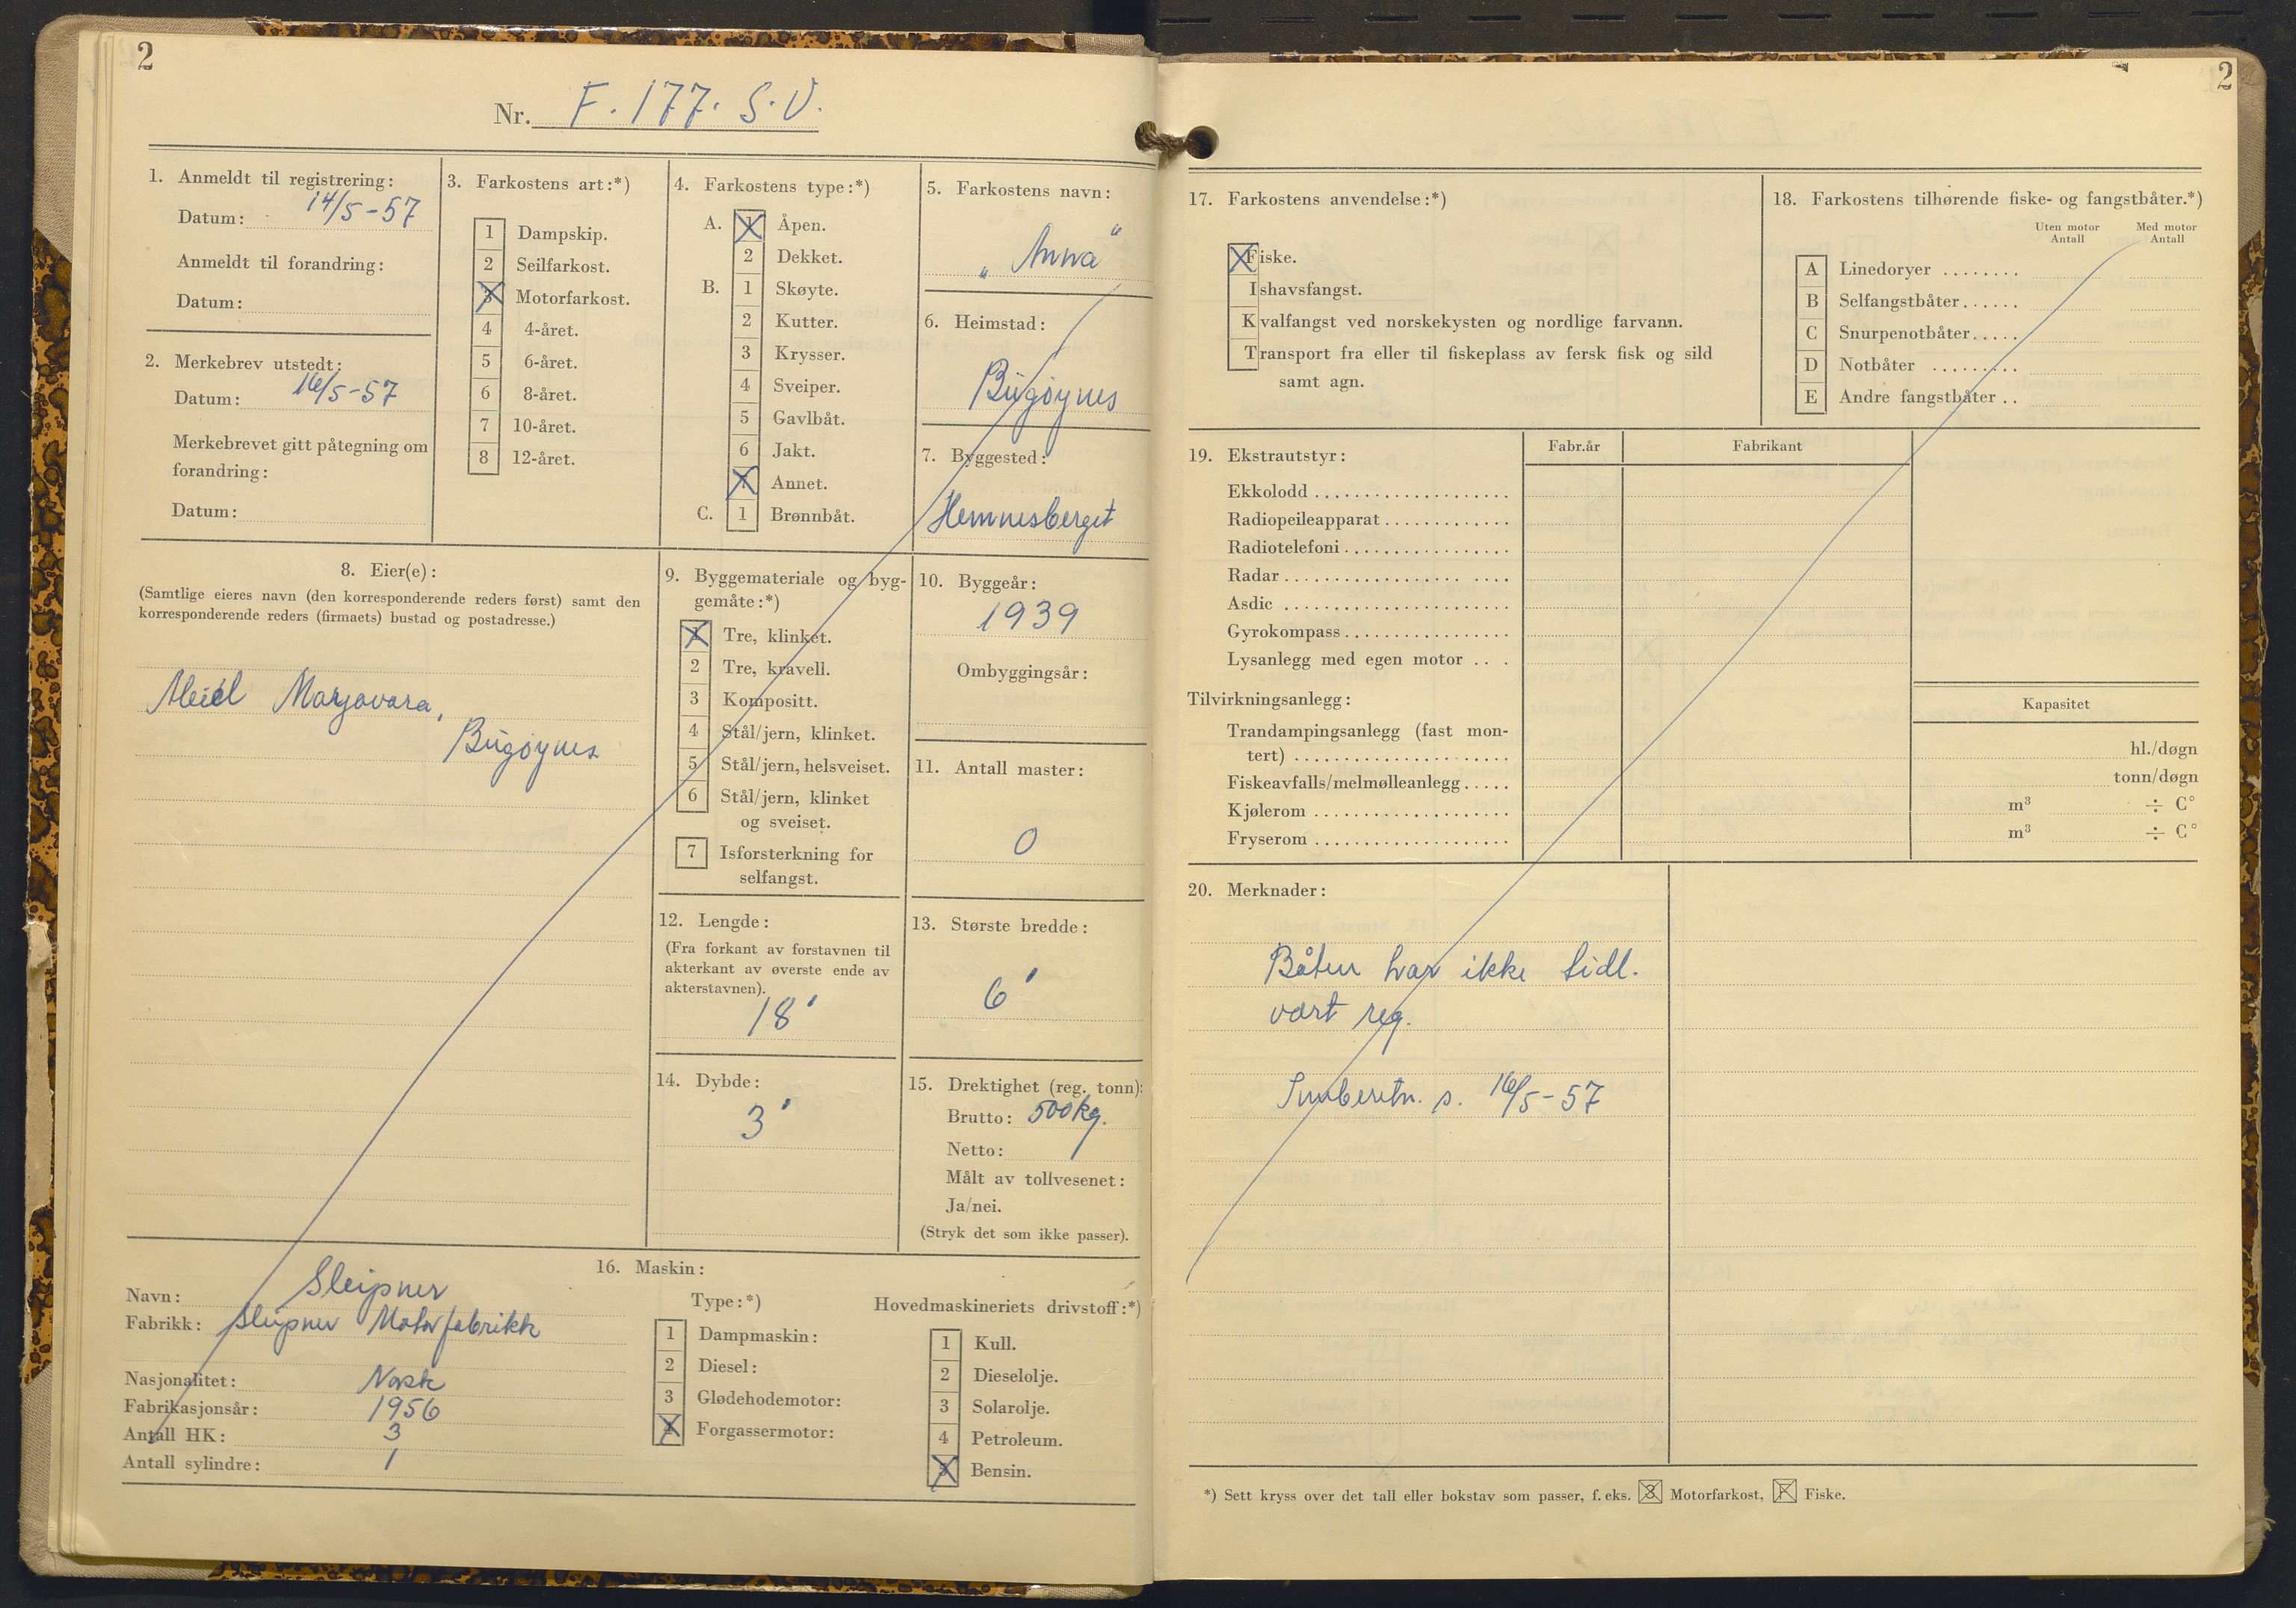 2
Nr. F. 177. S.V.
1. Anmeldt til registrering:
Datum: 14/5-57
Anmeldt til forandring:
Datum:
2. Merkebrev utstedt:
Datum: 16/5-57
Merkebrevet gitt påtegning om
forandring:
Datum:
3. Farkostens art:*)
1 Dampskip.
2 Seilfarkost.
3 Motorfarkost.
4 4-året.
5 6-året.
6 8-året.
7 10-året.
8 12-året.
4. Farkostens type:*)
A. 1 Åpen.
2 Dekket.
B. 1 Skøyte.
2 Kutter.
3 Krysser.
4 Sveiper.
5 Gavlbåt.
6 Jakt.
7 Annet.
C. 1 Brønnbåt.
5. Farkostens navn:
„Anna"
6. Heimstad:
Bugøynes
7. Byggested:
Hemnesberget
8. Eier(e):
(Samtlige eieres navn (den korresponderende reders først) samt den
korresponderende reders (firmaets) bustad og postadresse.)
Marjavara,
Bugøynes
9. Byggemateriale og byg-
gemåte:*)
1 Tre, klinket.
2 Tre, kravell.
3 Kompositt.
4 Stål/jern, klinket.
5 Stål/jern, helsveiset.
6 Stål/jern, klinket
og sveiset.
7 Isforsterkning for
selfangst.
10. Byggeår:
1939
Ombyggingsår:
11. Antall master:
0
12. Lengde:
(Fra forkant av forstavnen til
akterkant av øverste ende av
akterstavnen).
18'
13. Største bredde:
6'
14. Dybde:
3'
15. Drektighet (reg. tonn):
Brutto: 500 kg.
Netto:
Målt av tollvesenet:
Ja/nei.
(Stryk det som ikke passer).
16. Maskin:
Navn: Sleipner
Fabrikk: Sleipner Motorfabrikk
Nasjonalitet: Norsk
Fabrikasjonsår: 1956
Antall HK: 3
Antall sylindre: 1
Type:*)
1 Dampmaskin:
2 Diesel:
3 Glødehodemotor:
4 Forgassermotor:
Hovedmaskineriets drivstoff:*)
1 Kull.
2 Dieselolje.
3 Solarolje.
4 Petroleum.
5 Bensin.
2
17. Farkostens anvendelse:*)
Fiske.
Ishavsfangst.
Kvalfangst ved norskekysten og nordlige farvann.
Transport fra eller til fiskeplass av fersk fisk og sild
samt agn.
18. Farkostens tilhørende fiske- og fangstbåter.*)
Uten motor Antall
Med motor Antall
A Linedoryer ........
B Selfangstbåter......
C Snurpenotbåter.....
D Notbåter .........
E Andre fangstbåter ..
19. Ekstrautstyr:
Fabr.år
Fabrikant
Ekkolodd
Radiopeileapparat
Radiotelefoni
Radar
Asdic
Gyrokompass
Lysanlegg med egen motor
Tilvirkningsanlegg:
Kapasitet
Trandampingsanlegg (fast mon-
tert) hl./døgn
Fiskeavfalls/melmølleanlegg..... tonn/døgn
Kjølerom m³ ÷ C°
Fryserom m³ ÷ C°
20. Merknader:
Båten har ikke tidl.
vært reg.
Innberetn. s. 16/5-57
*) Sett kryss over det tall eller bokstav som passer, f. eks. 3 Motorfarkost, F Fiske.